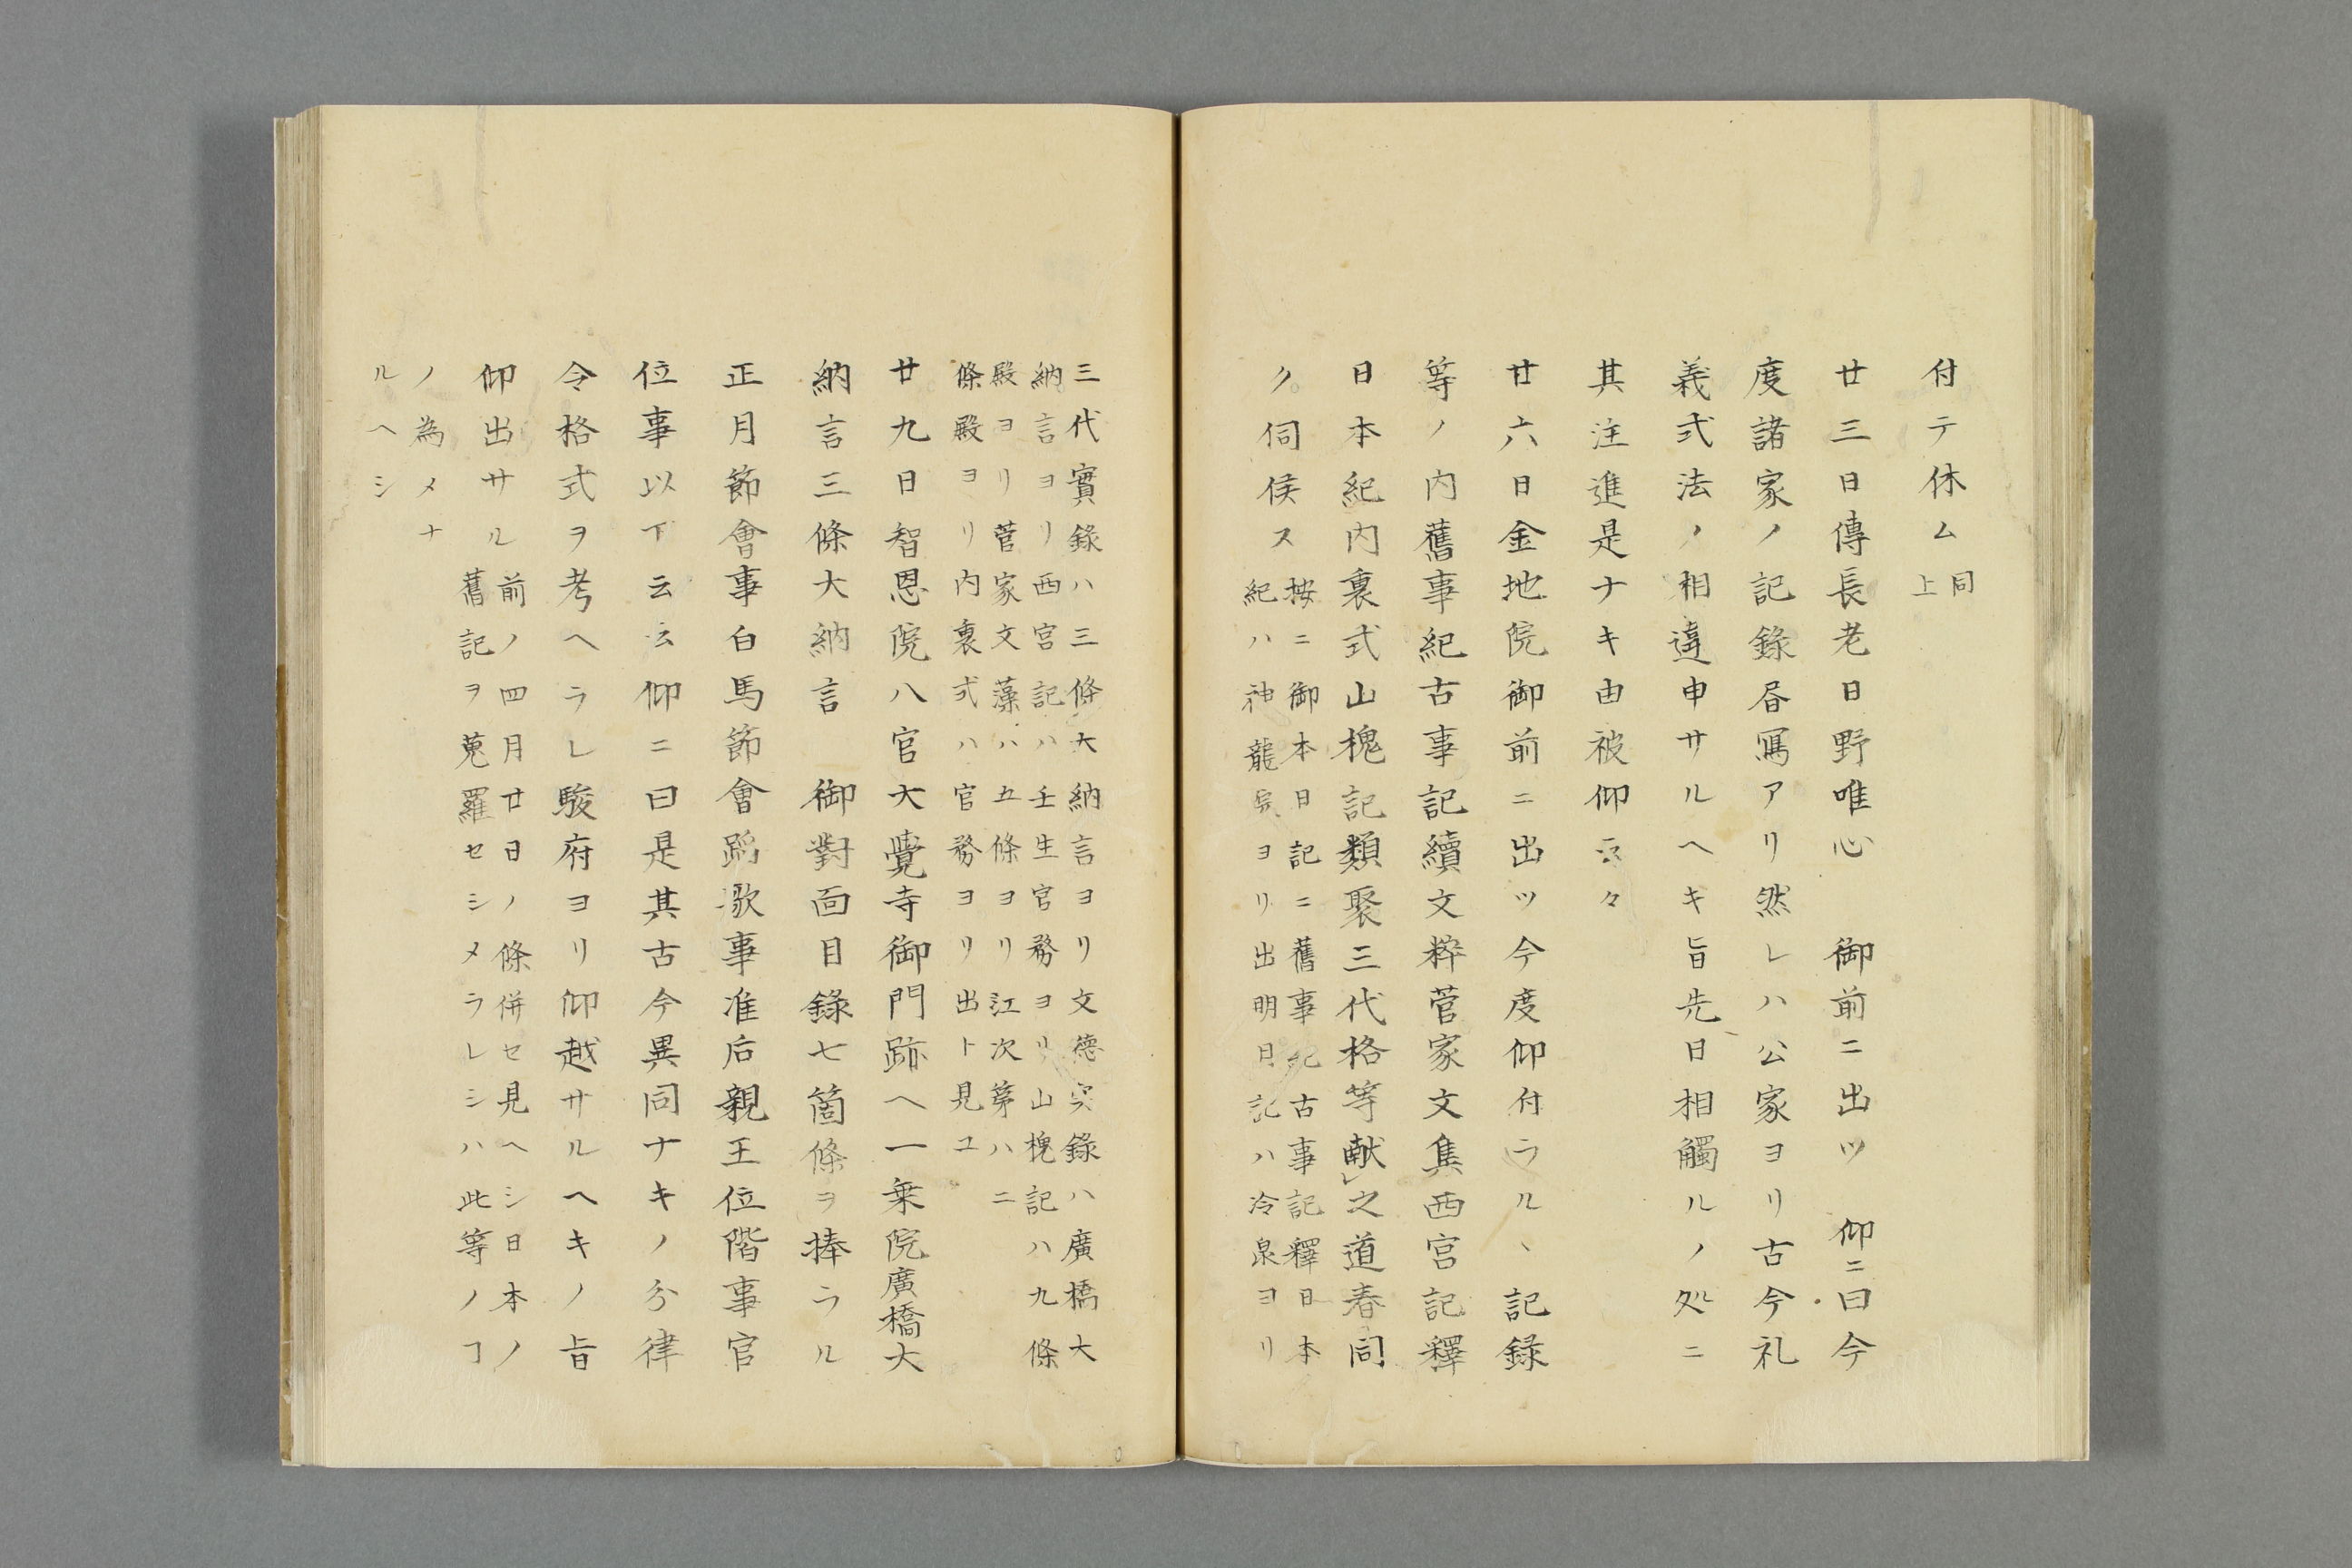 付テ休ム同上
廿三日傳長老日野唯心　御前ニ出ツ　仰ニ曰今
度諸家ノ記錄書寫アリ然レハ公家ヨリ古今礼
義式法ノ相違申サルヘキ旨先日相觸ルノ処ニ
其注進是ナキ由被仰云々
廿六日金地院御前ニ出ツ今度仰付ラルヽ記録
等ノ内舊事紀古事記續文粹菅家文集西宮記釋
日本紀内裏式山槐記類聚三代格等献之道春同
ク伺侯ス
按ニ御本日記ニ舊事紀古事記釋日本
紀ハ神龍院ヨリ出明月記ハ冷泉ヨリ
三代實錄ハ三條大納言ヨリ文德実錄ハ廣橋大
納言ヨリ西宮記ハ壬生官務ヨリ山槐記ハ九條
殿ヨリ菅家文藻ハ五條ヨリ江次第ハ二
條殿ヨリ内裏式ハ官務ヨリ出ト見ユ
廿九日智恩院八官大覺寺御門跡ヘ一乗院廣橋大
納言三條大納言　御對面目錄七箇條ヲ捧ラル
正月節會事白馬節會蹈歌事准后親王位階事官
位事以下云云仰ニ曰是其古今異同ナキノ分律
令格式ヲ考ヘラレ駿府ヨリ仰越サルヘキノ旨
仰出サル
前ノ四月廿日ノ條併セ見ヘシ日本ノ
舊記ヲ蒐羅セシメラレシハ此等ノヿ
ノ為メナ
ルヘシ